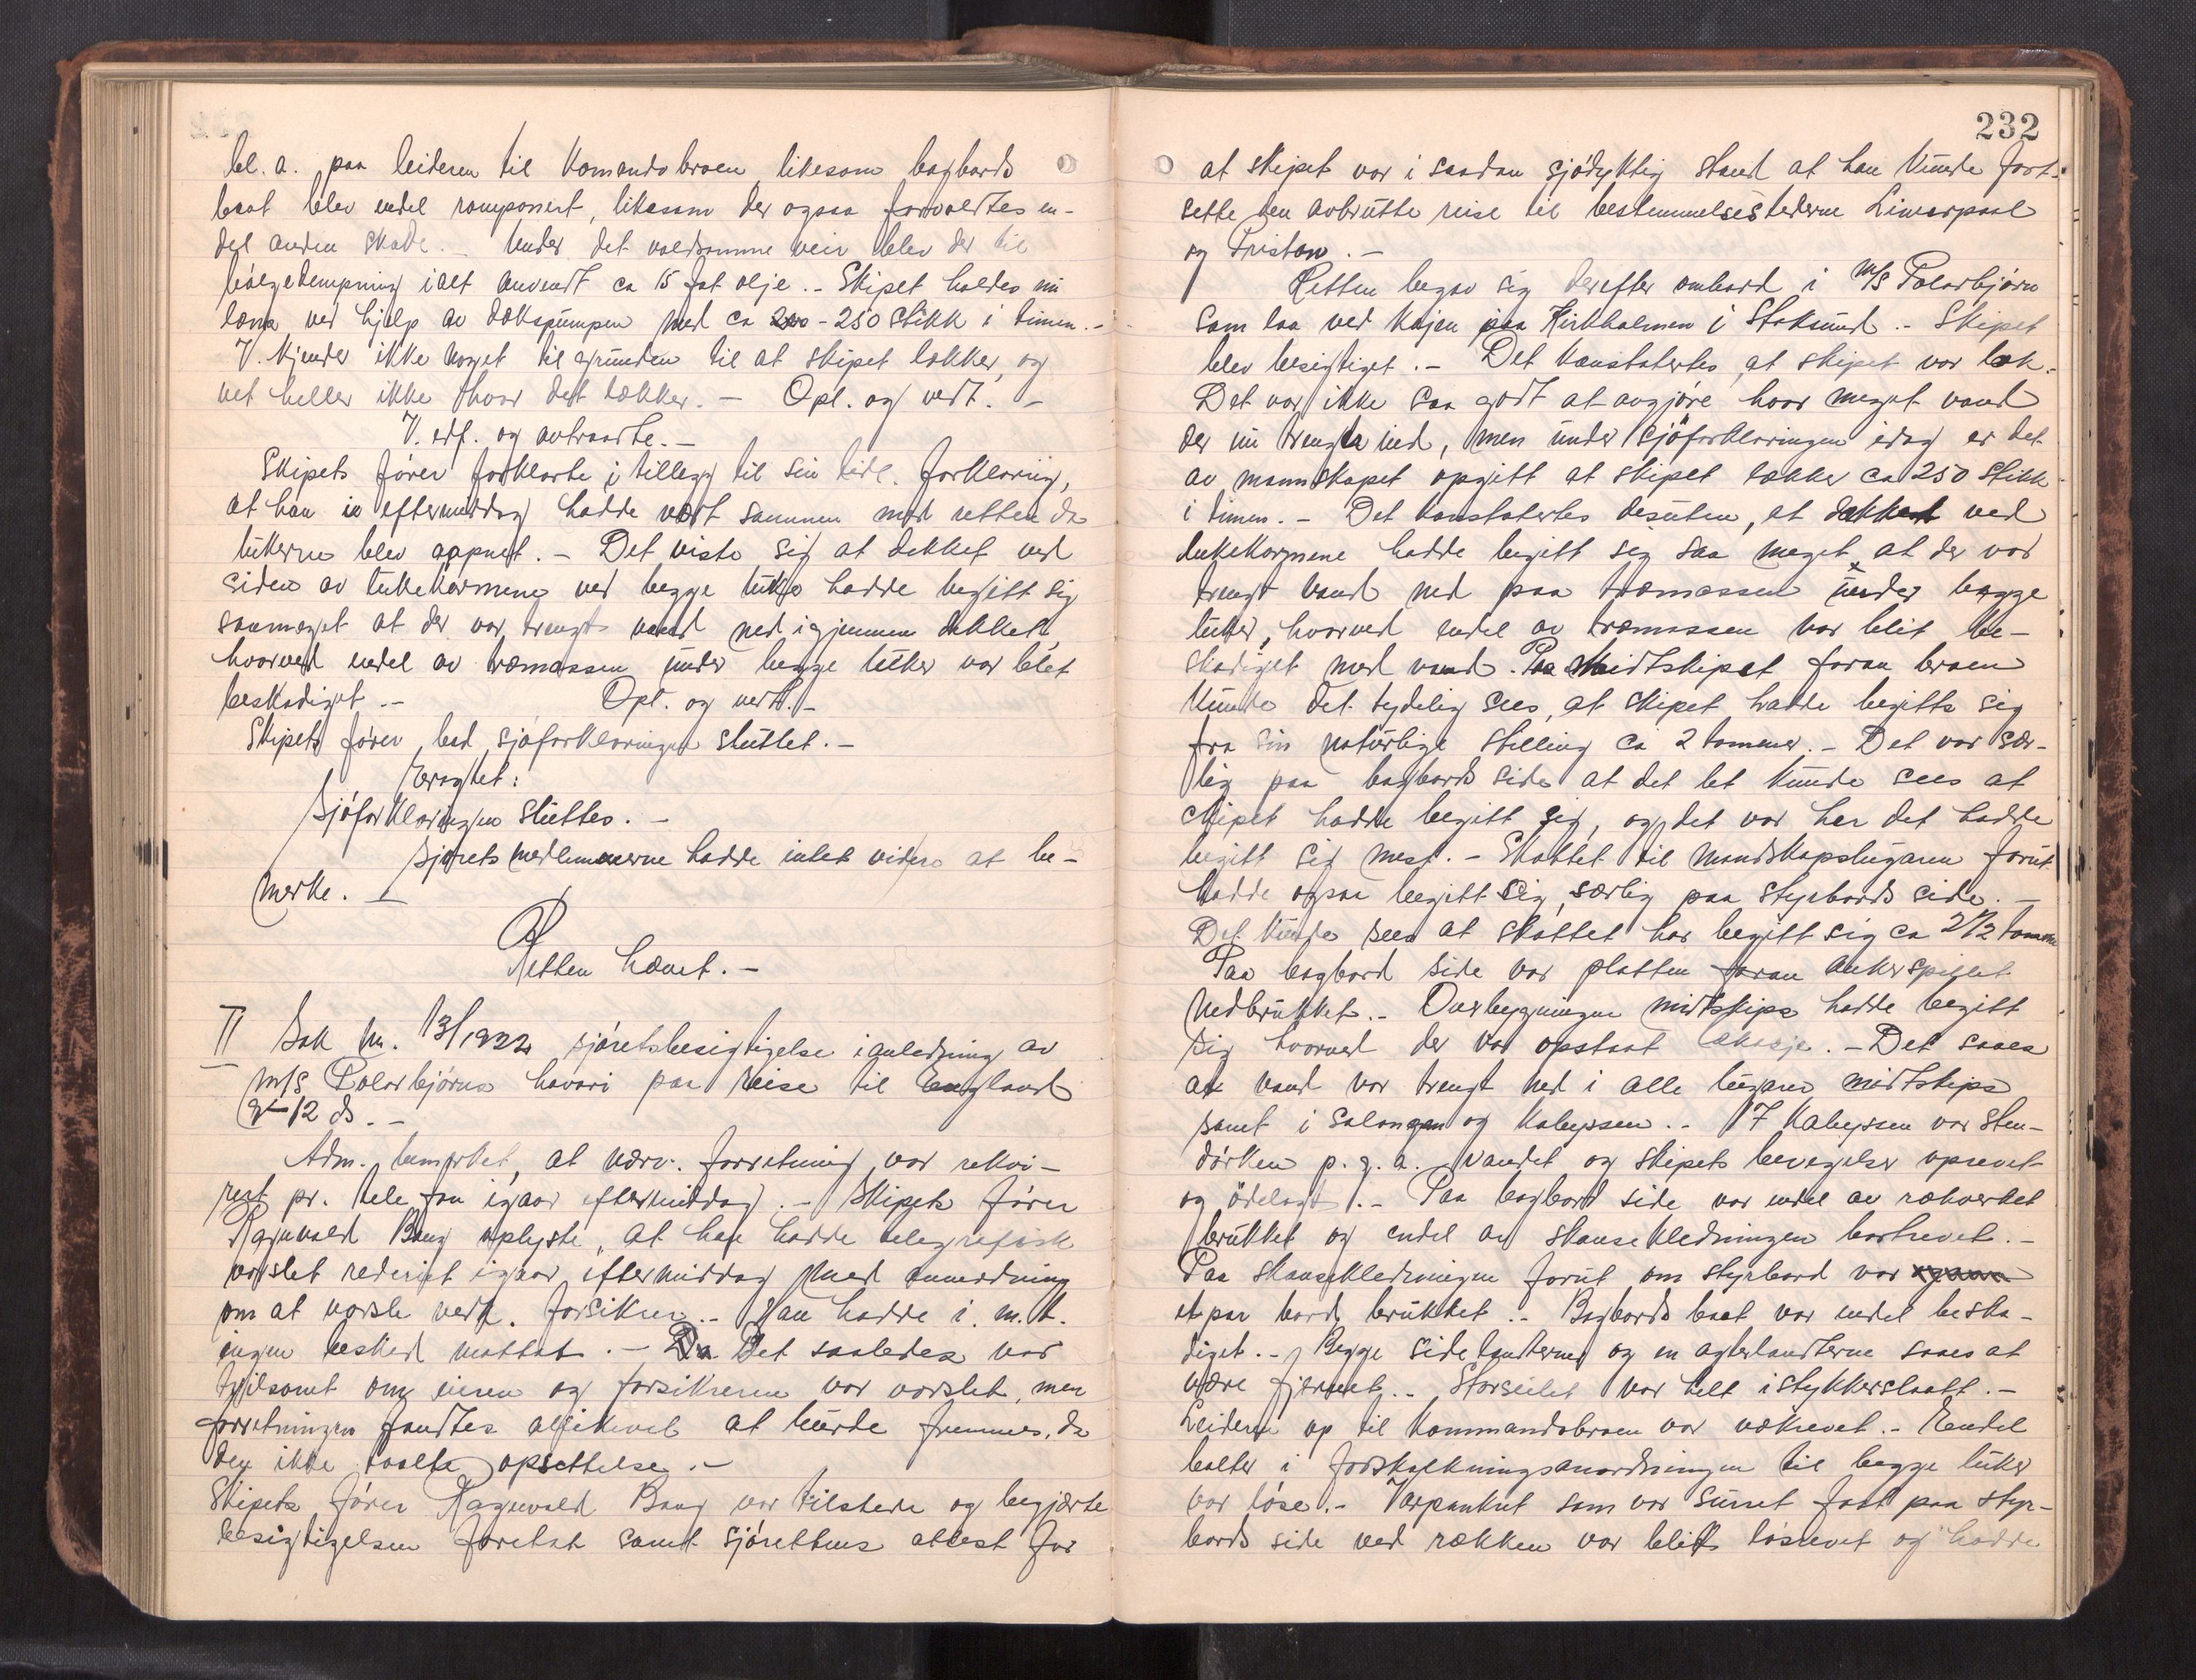 bl. a. paa leideren til Komandobroen, likesom bagbords
baat blev endel ramponert, likesom der ogsaa forvoldtes en-
del anden skade. - Under det voldsomme veir blev der til
bølgedempning ialt anvendt ca 15 fat olje. - Skipet holdes nu
læns ved hjelp av dækspumpen med ca 200 - 250 stikk i timen. -
V. kjender ikke noget til grunden til at skipet lækker, og
vet heller ikke hvor det lækker. - Opl. og vedt. -
V. edf. og avtraadte. -
Skipets fører forklarte i tillegg til sin tidl. forklaring,
at han i eftermiddag hadde vært sammen med retten da
lukerne blev aapnet. - Det viste sig at dekket ved
siden av lukekarmene ved begge luker hadde begitt sig
saameget at der var trengt vand ned igjennem dekket,
hvorved endel av træmassen under begge luker var blit
beskadiget. - Opl. og vedt. -
Skipets fører bad sjøforklaringen sluttet. -
Eragtet:
Sjøforklaringen sluttes. -
Sjørets medlemmerne hadde intet videre at be-
merke. -
Retten hævet. -
II Sak nr. 13/1922 sjøretsbesigtigelse i anledning av
M/S Polarbjørns havari paa reise til England
9-12 ds. -
Adm. bemerket, at nærv. forretning var rekvi-
rert pr. telefon igaar eftermiddag. - Skipets fører
Ragnvald Bang oplyste, at han hadde telegrafisk
varslet rederiet igaar eftermiddag med anmodning
om at varsle vedk. forsikrer. - Han hadde i. m. t.
ingen besked mottat. - Da Det saaledes var
tvilsomt om eieren og forsikreren var varslet, men
forretningen fandtes allikevel at burde fremmes, da
den ikke taalte opsettelse. -
Skipets fører Ragnvald Bang var tilstede og begjærte
besigtigelsen foretat samt sjørettens attest for
232
at skipet var i saadan sjødyktig stand at han kunde fort-
sette den avbrutte reise til bestemmelsesstederne Liverpool
og Preston. -
Retten begav sig derefter ombord i M/S Polarbjørn
som laa ved kajen paa Kirkholmen i Stoksund. - Skipet
blev besigtiget. - Det konstatertes, at skipet var læk.
Det var ikke saa godt at avgjøre hvor meget vand
der nu trenger ind, men under sjøforklaringen idag er det
av mannskapet opgitt at skipet lækker ca 250 stikk
i timen. - Det konstatertes desuten, at dekket ved
lukekarmene hadde begitt seg saa meget, at der var
trengt vand ned paa træmassen under begge
luker, hvorved endel av træmassen var blit be-
skadiget med vand. Paa midtskipet foran broen
kunde det tydelig sees, at skipet hadde begitt sig
fra sin naturlige stilling ca 2 tommer. - Det var sær-
lig paa bagbords side at det let kunde sees at
skipet hadde begitt sig, og det var her det hadde
begitt sig mest. - Skottet til mandskapslugaren forut
hadde ogsaa begitt sig, særlig paa styrbords side. -
Det kunde sees at skottet har begitt sig ca 2 1/2 tomme
Paa bagbord side var platten foran ankerspillet
nedbrukket. - Overbygningen midtskips hadde begitt
sig hvorved der var opstaat lekasje. - Det saaes
at vand var trengt ned i alle lugarer midtskips
samt i salongen og kabyssen. - I kabyssen var sten-
dørken p. g. a. vandet og skipets bevegelser oprevet
og ødelagt. - Paa bagbord side var endel av rækverket
brukket og endel av skansekledningen bortrevet. -
Paa skansekledningen forut om styrbord var
et par bord brukket. - Bagbords baat var endel beska-
diget. - Begge sidelanterner og en agterlanterne saaes at
være fjernet. - Storseilet var helt istykkerslaatt. -
Leideren op til Kommandobroen var vækrevet. - Endel
bolter i forskalkningsanordningen til begge luker
var løse. - Varpankret som var surret fast paa styr-
bords side ved rækken var blit løsrevet og hadde